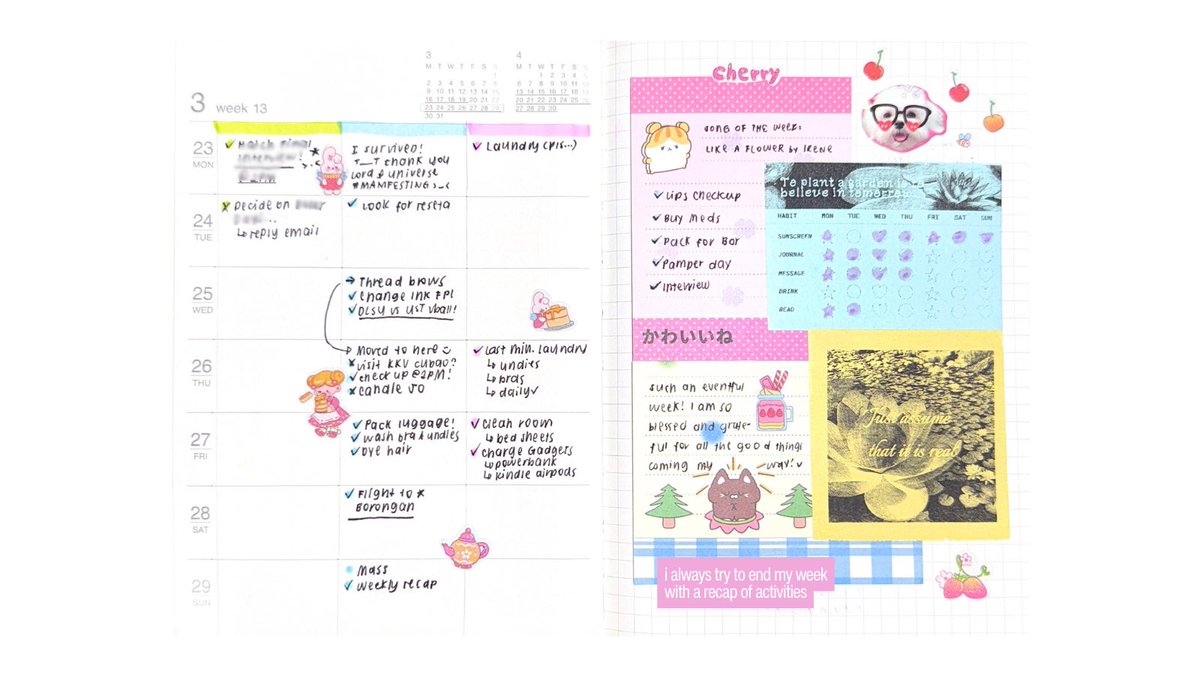 3
M T W T F S S
1
2 3 4 5 6 7 8
9 10 11 12 13 14 15
16 17 18 19 20 21 22
23 24 25 26 27 28 29
30 31
4
M T W T F S S
1 2 3 4
6 7 8 9 10 11
13 14 15 16 17 18
20 21 22 23 24 25
27 28 29 30
3 week 13
23
MON
Interview!
I survived!
T_T thank you
Lord & universe
#MANIFESTING >_<
Laundry
24
TUE
Decide on
↳ reply email
Look for resta
25
WED
→ Thread brows
Change ink FPL
DLSU vs UST vball!
26
THU
Moved to here
visit KKV Cubao?
check up @2PM!
candle
Last min. laundry
↳ undies
↳ bras
↳ daily
27
FRI
Pack luggage!
wash bra & undies
Dye hair
Clean room
↳ bed sheets
Charge gadgets
↳ powerbank
↳ kindle airpods
28
SAT
Flight to
Borongan
29
SUN
Mass
Weekly recap
cherry
SONG OF THE WEEK:
LIKE A FLOWER by IRENE
Lips checkup
Buy meds
Pack for Bor
Pamper day
Interview
かわいいね
such an eventful
week! I am so
blessed and grate-
ful for all the good things
coming my way!
To plant a garden is to
believe in tomorrow
HABIT MON TUE WED THU FRI SAT SUN
SUNSCREEN
JOURNAL
MESSAGE
DRINK
READ
Just assume
that it is real
i always try to end my week
with a recap of activities